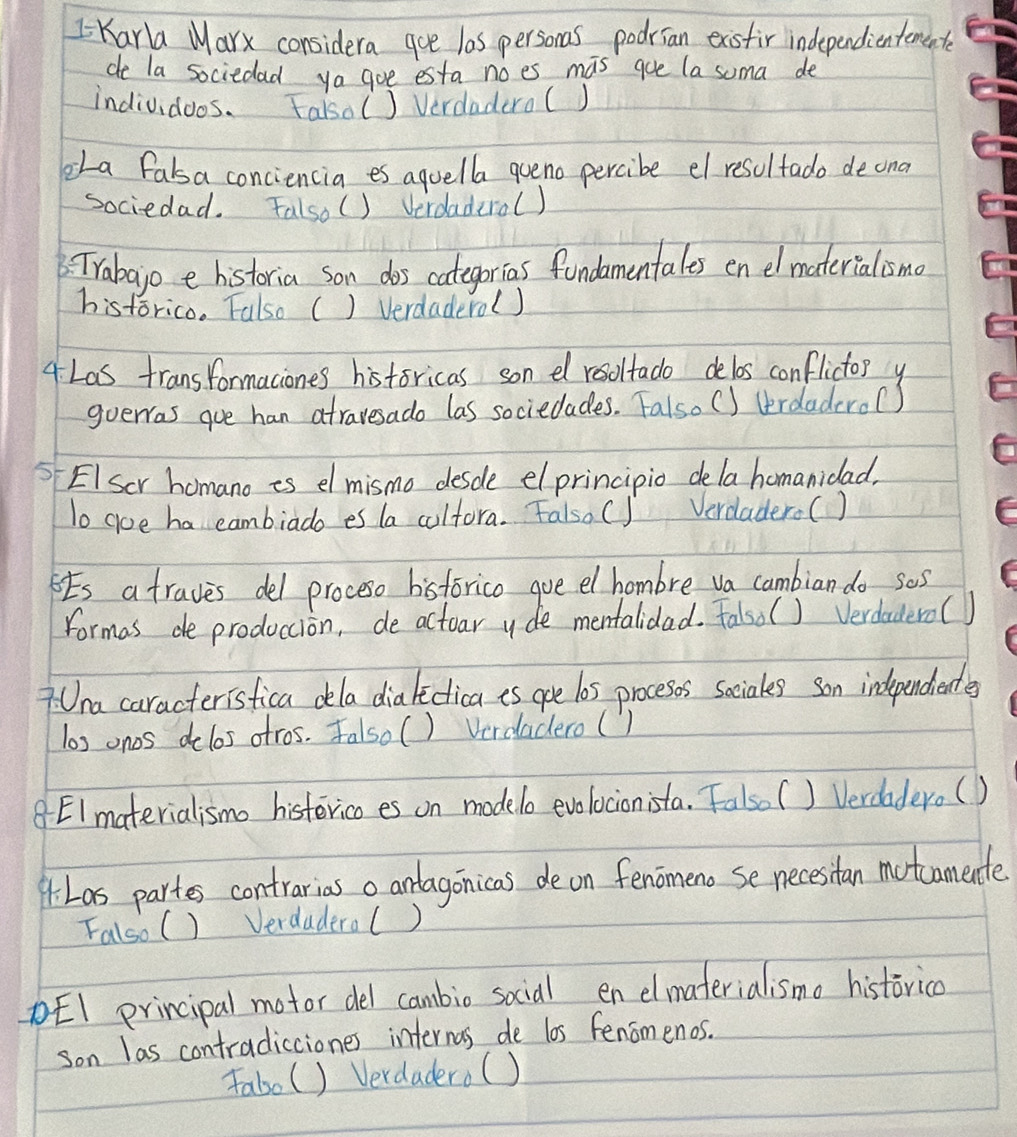 1-Karla Marx considera que las personas podrían existir independientemente
de la sociedad ya que esta no es más que la suma de
individuos. Falso ( ) Verdadero ( )
2-La falsa conciencia es aquella queno percibe el resultado de una
Sociedad. Falso ( ) Verdadero ( )
3-Trabajo e historia son dos categorías fundamentales en el materialismo
histórico. Falso ( ) Verdadero ( )
4-Las transformaciones históricas son el resultado delos conflictos y
guerras que han atravesado las sociedades. Falso ( ) Verdadero ( )
5-El ser humano es el mismo desde el principio de la humanidad.
lo que ha cambiado es la cultura. Falso ( ) Verdadero ( )
6-Es a través del proceso histórico que el hombre va cambiando sus
formas de producción, de actuar y de mentalidad. Falso ( ) Verdadero ( )
7-Una característica dela dialéctica es que los procesos sociales son independientes
los unos delos otros. Falso ( ) Verdadero ( )
8-El materialismo histórico es un modelo evolucionista. Falso ( ) Verdadero ( )
9-Las partes contrarias o antagónicas de un fenómeno se necesitan mutuamente.
Falso ( ) Verdadero ( )
10-El principal motor del cambio social en el materialismo histórico
son las contradicciones internas de los fenómenos.
Falso ( ) Verdadero ( )